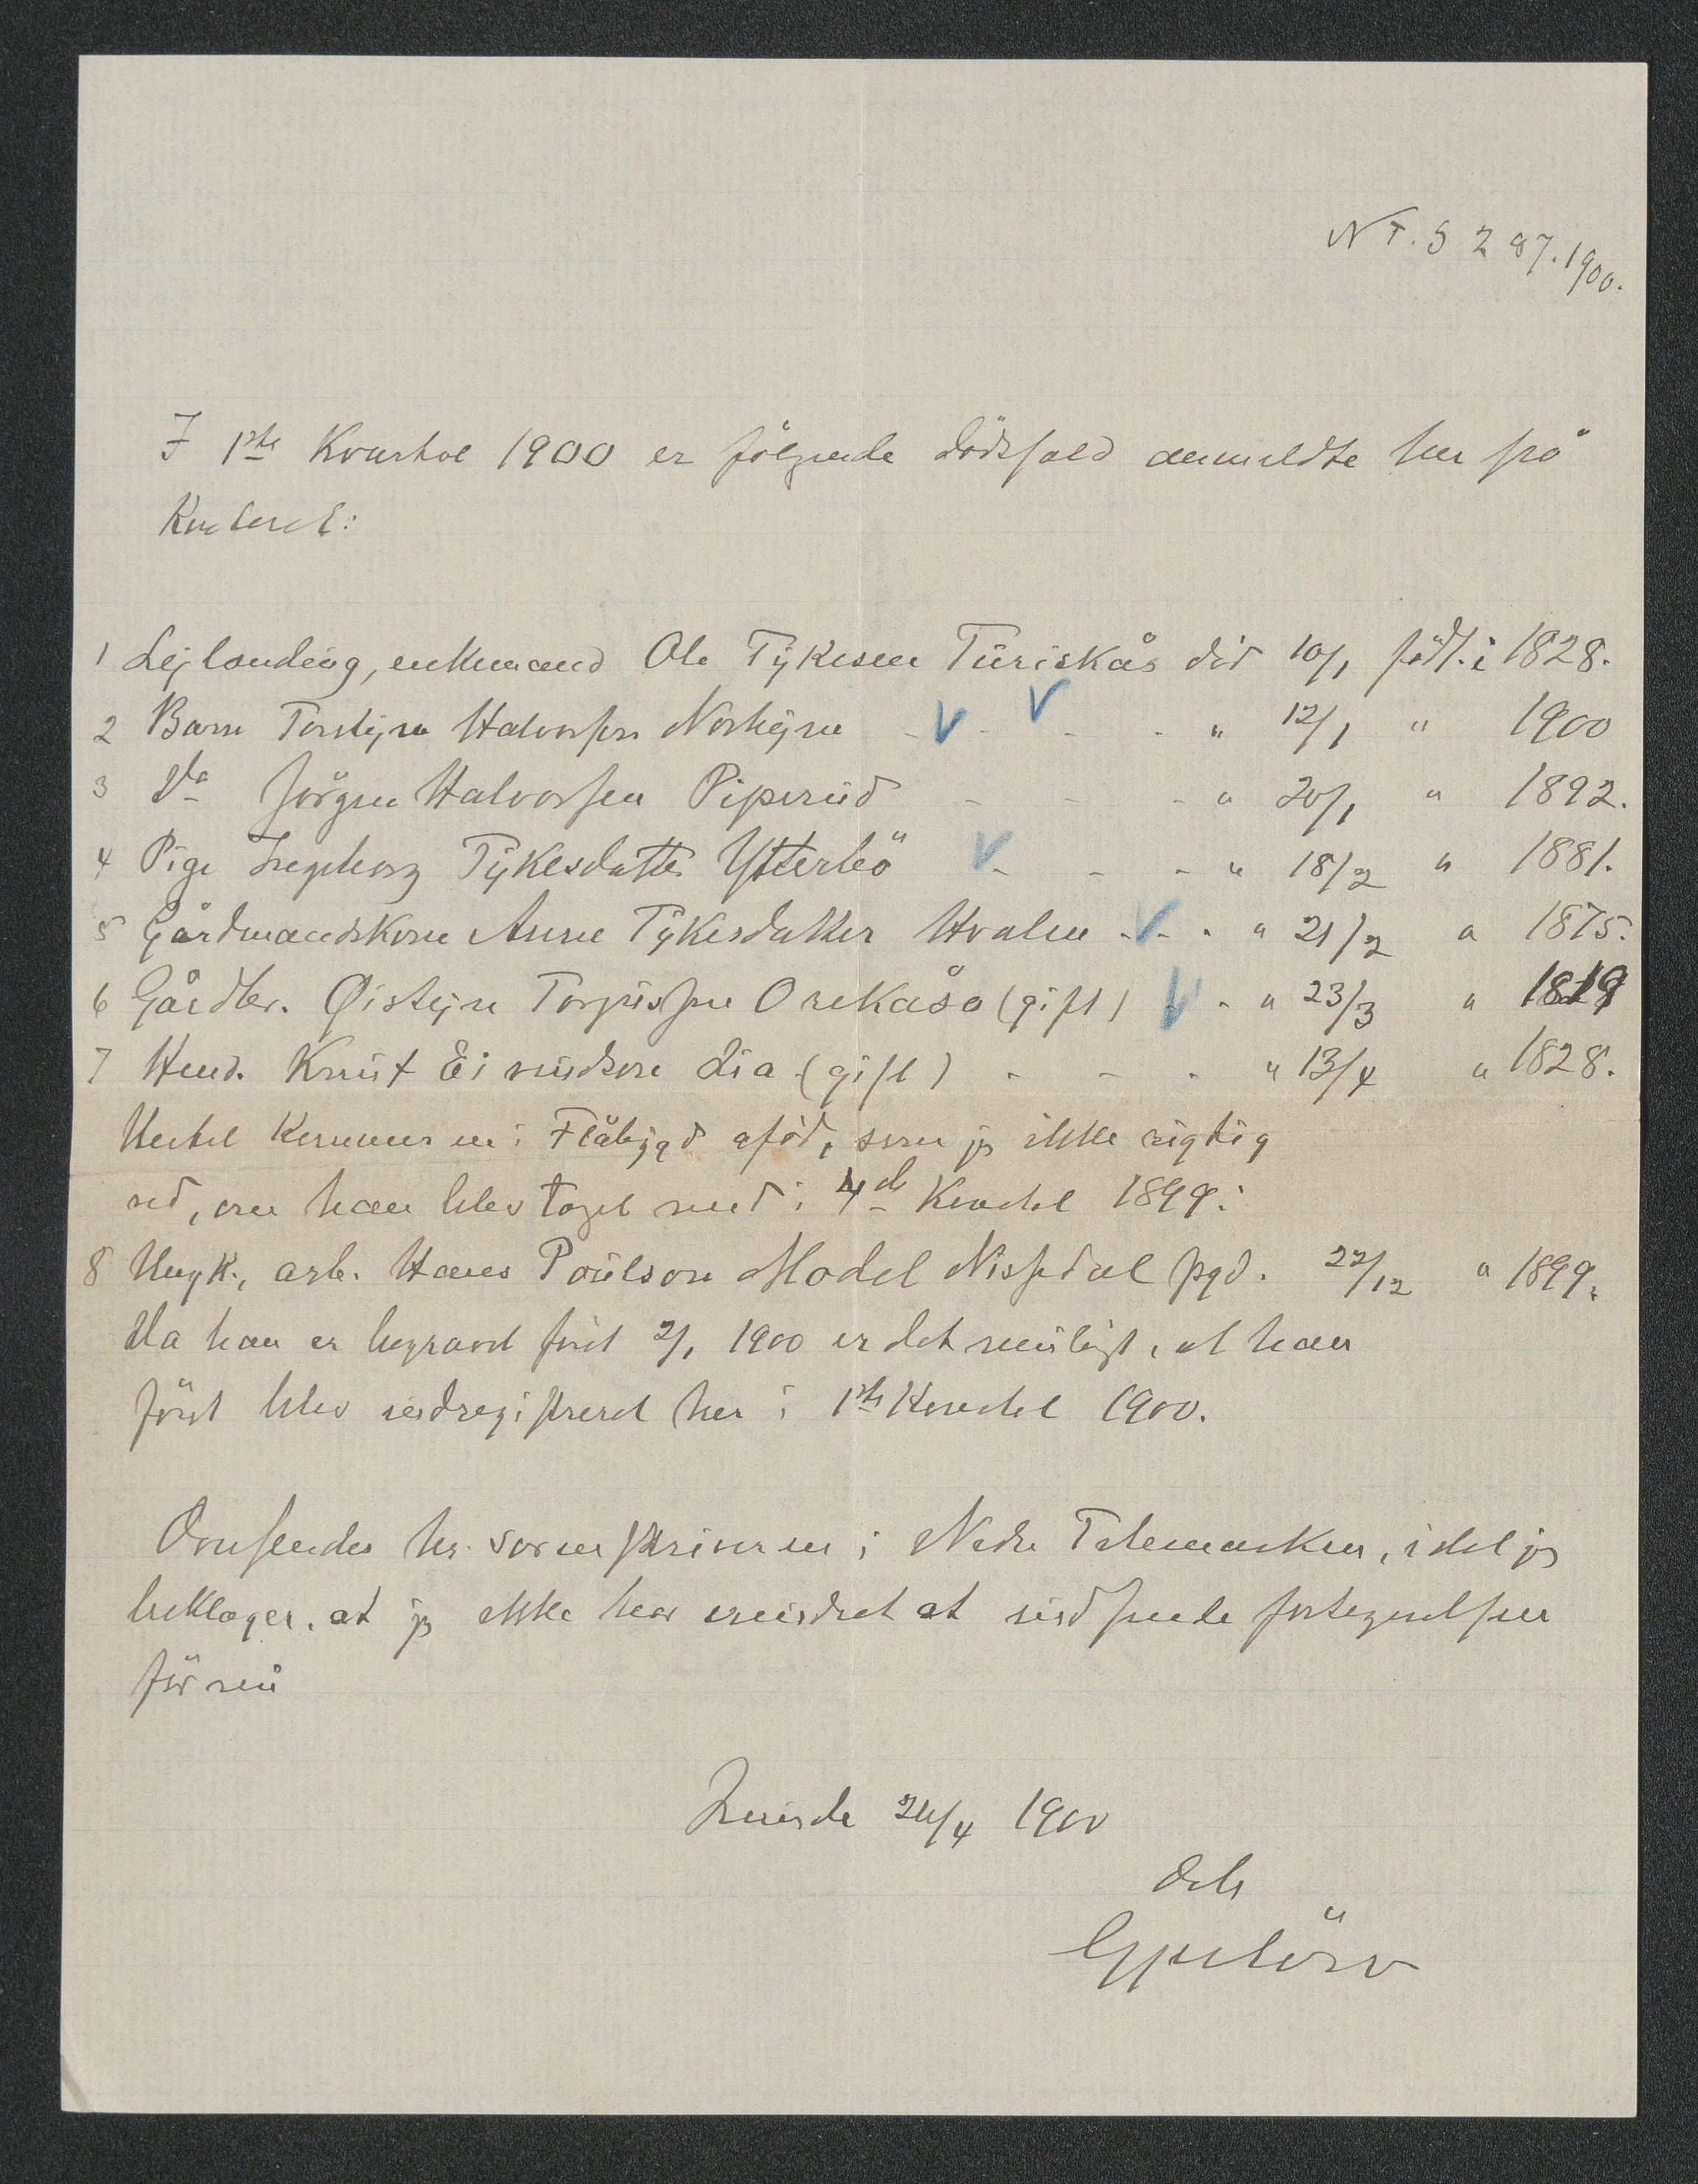 N T. S 287. 1900.
I 1ste Kvartal 1900 er følgende dödsfald anmeldte her på
Kontoret:
1 Lejlænding, enkemand Ole Tÿkesen Türiskås död 10/1 född i 1828.
2 Barn Torstejn Halvorsen Norhejm - - - - " 12/1 " 1900
3 Do Jörgen Halvorsen Piperüd - - - " 20/1 " 1892.
4 Pige Ingeborg Tÿkesdatter Ytterbö - - - " 18/2 " 1881.
5 Gårdmandskone Anne Tÿkesdatter Hvalen - - - " 21/2 " 1875.
6 Gårdbr. Øistejn Torjüssen Orekåsa (gift) - - " 23/3 " 1819
7 Husm. Knüt Eivindson Lia (gift) - - - " 13/4 " 1828.
kommer en i Flåbÿgd afdöd, som jeg ikke rigtig
ved, om han blev taget med i 4de Kvartal 1899:
8 Ungk., arb. Hans Poülson Modal Nissedal pgd. 22/12 " 1899.
Da han er begravet först 2/1 1900 er det müligt, at han
först blev indregistreret her i 1ste Kvartal 1900.
Oversendes hr. sorenskriveren i Nedre Telemarken, idet jeg
beklager, at jeg ikke har erindret at indsende fortegnelsen
för nü
24/4 1900